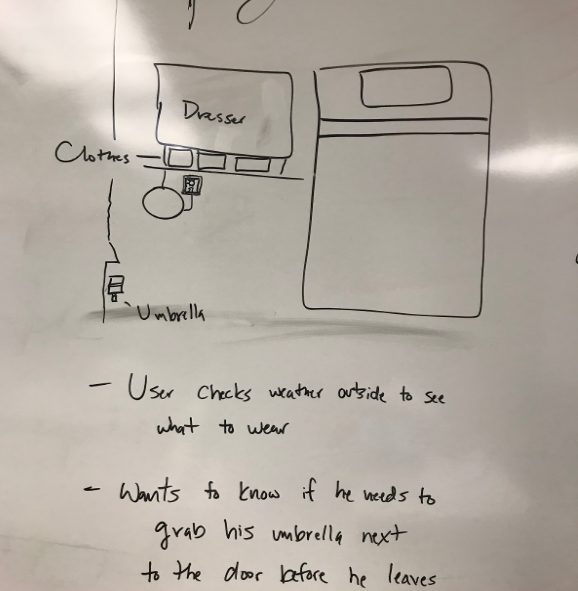 Dresser
Clothes
Umbrella
- User checks weather outside to see
what to wear
- Wants to know if he needs to
grab his umbrella next
to the door before he leaves